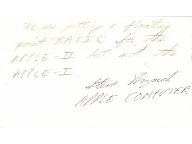 We are putting a floating
point BASIC for the
APPLE-II but not the
APPLE-I.
Steve Wozniak
APPLE COMPUTER